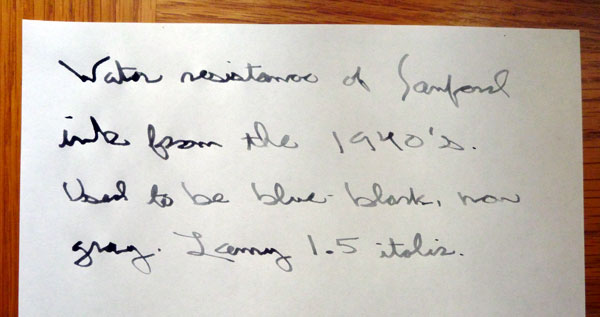 Water resistance of Sanford
ink from the 1940's.
Used to be blue-black, now
gray. Lamy 1.5 italic.